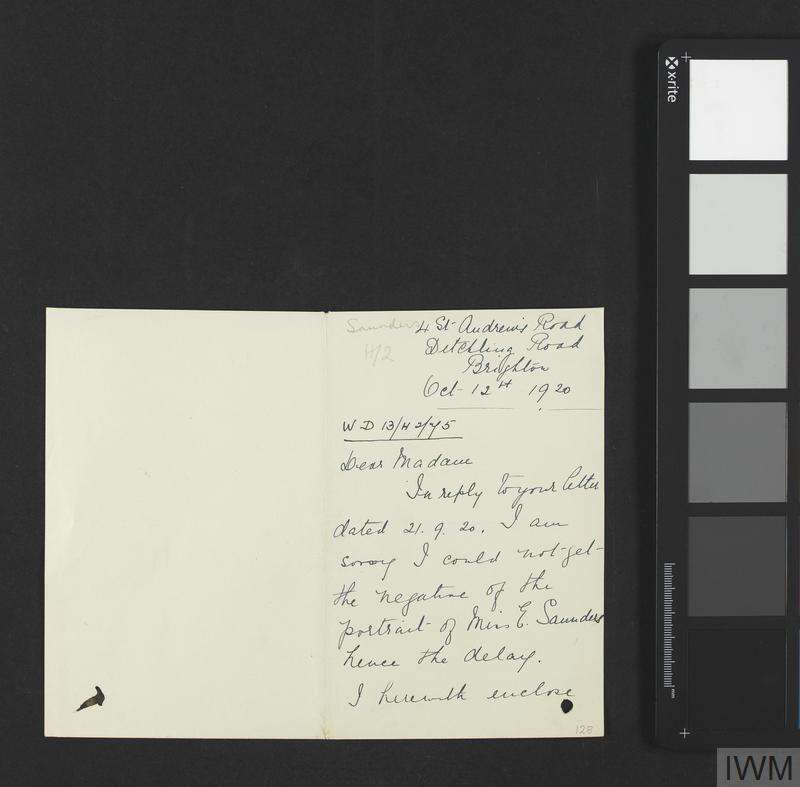 Saunders
H/2
4 St. Andrew's Road
Ditchling Road
Brighton
Oct 12th 1920
W D 13/H 2/45
Dear Madam
In reply to your letter
dated 21. 9. 20. I am
sorry I could not get
the negative of the
portrait of Miss E. Saunders
hence the delay.
I herewith enclose
128
x·rite
mm
IWM